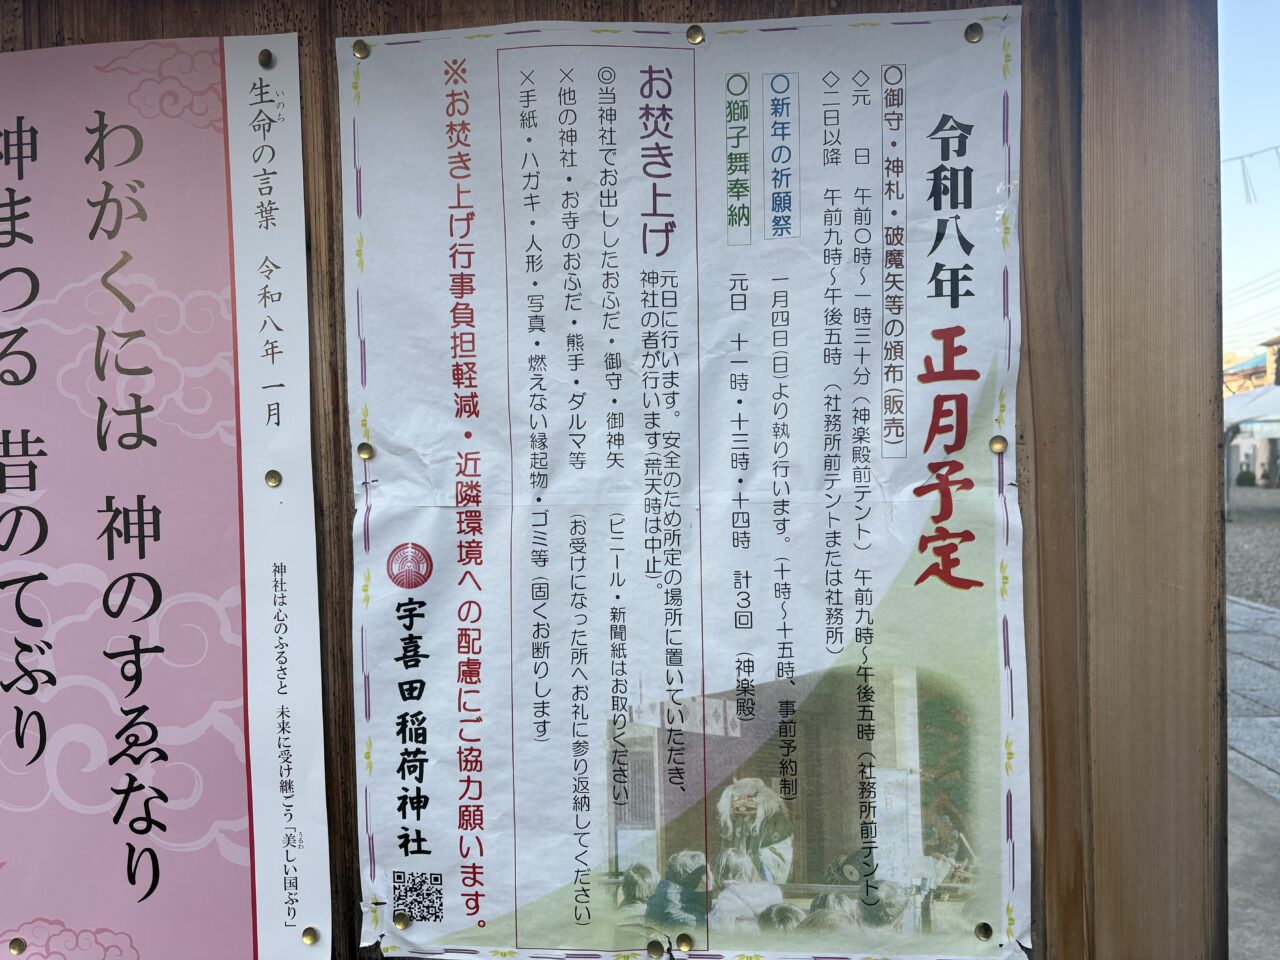 令和八年 正月予定
〇御守・神札・破魔矢等の頒布(販売)
◇元 日 午前〇時～一時三十分(神楽殿前テント) 午前九時～午後五時(社務所前テント)
◇二日以降 午前九時～午後五時(社務所前テントまたは社務所)
〇新年の祈願祭 一月四日(日)より執り行います。(十時～十五時、事前予約制)
〇獅子舞奉納 元日 十一時・十三時・十四時 計3回 (神楽殿)
お焚き上げ
元日に行います。安全のため所定の場所に置いていただき、
神社の者が行います(荒天時は中止)。
◎当神社でお出ししたおふだ・御守・御神矢 (ビニール・新聞紙はお取りください)
×他の神社・お寺のおふだ・熊手・ダルマ等 (お受けになった所へお礼に参り返納してください)
×手紙・ハガキ・人形・写真・燃えない縁起物・ゴミ等(固くお断りします)
※お焚き上げ行事負担軽減・近隣環境への配慮にご協力願います。
宇喜田稲荷神社
生命の言葉 令和八年 一月
いのち
神社は心のふるさと 未来に受け継ごう「美しい国ぶり」
うるわ
わがくには 神のすゑなり
神まつる 昔のてぶり